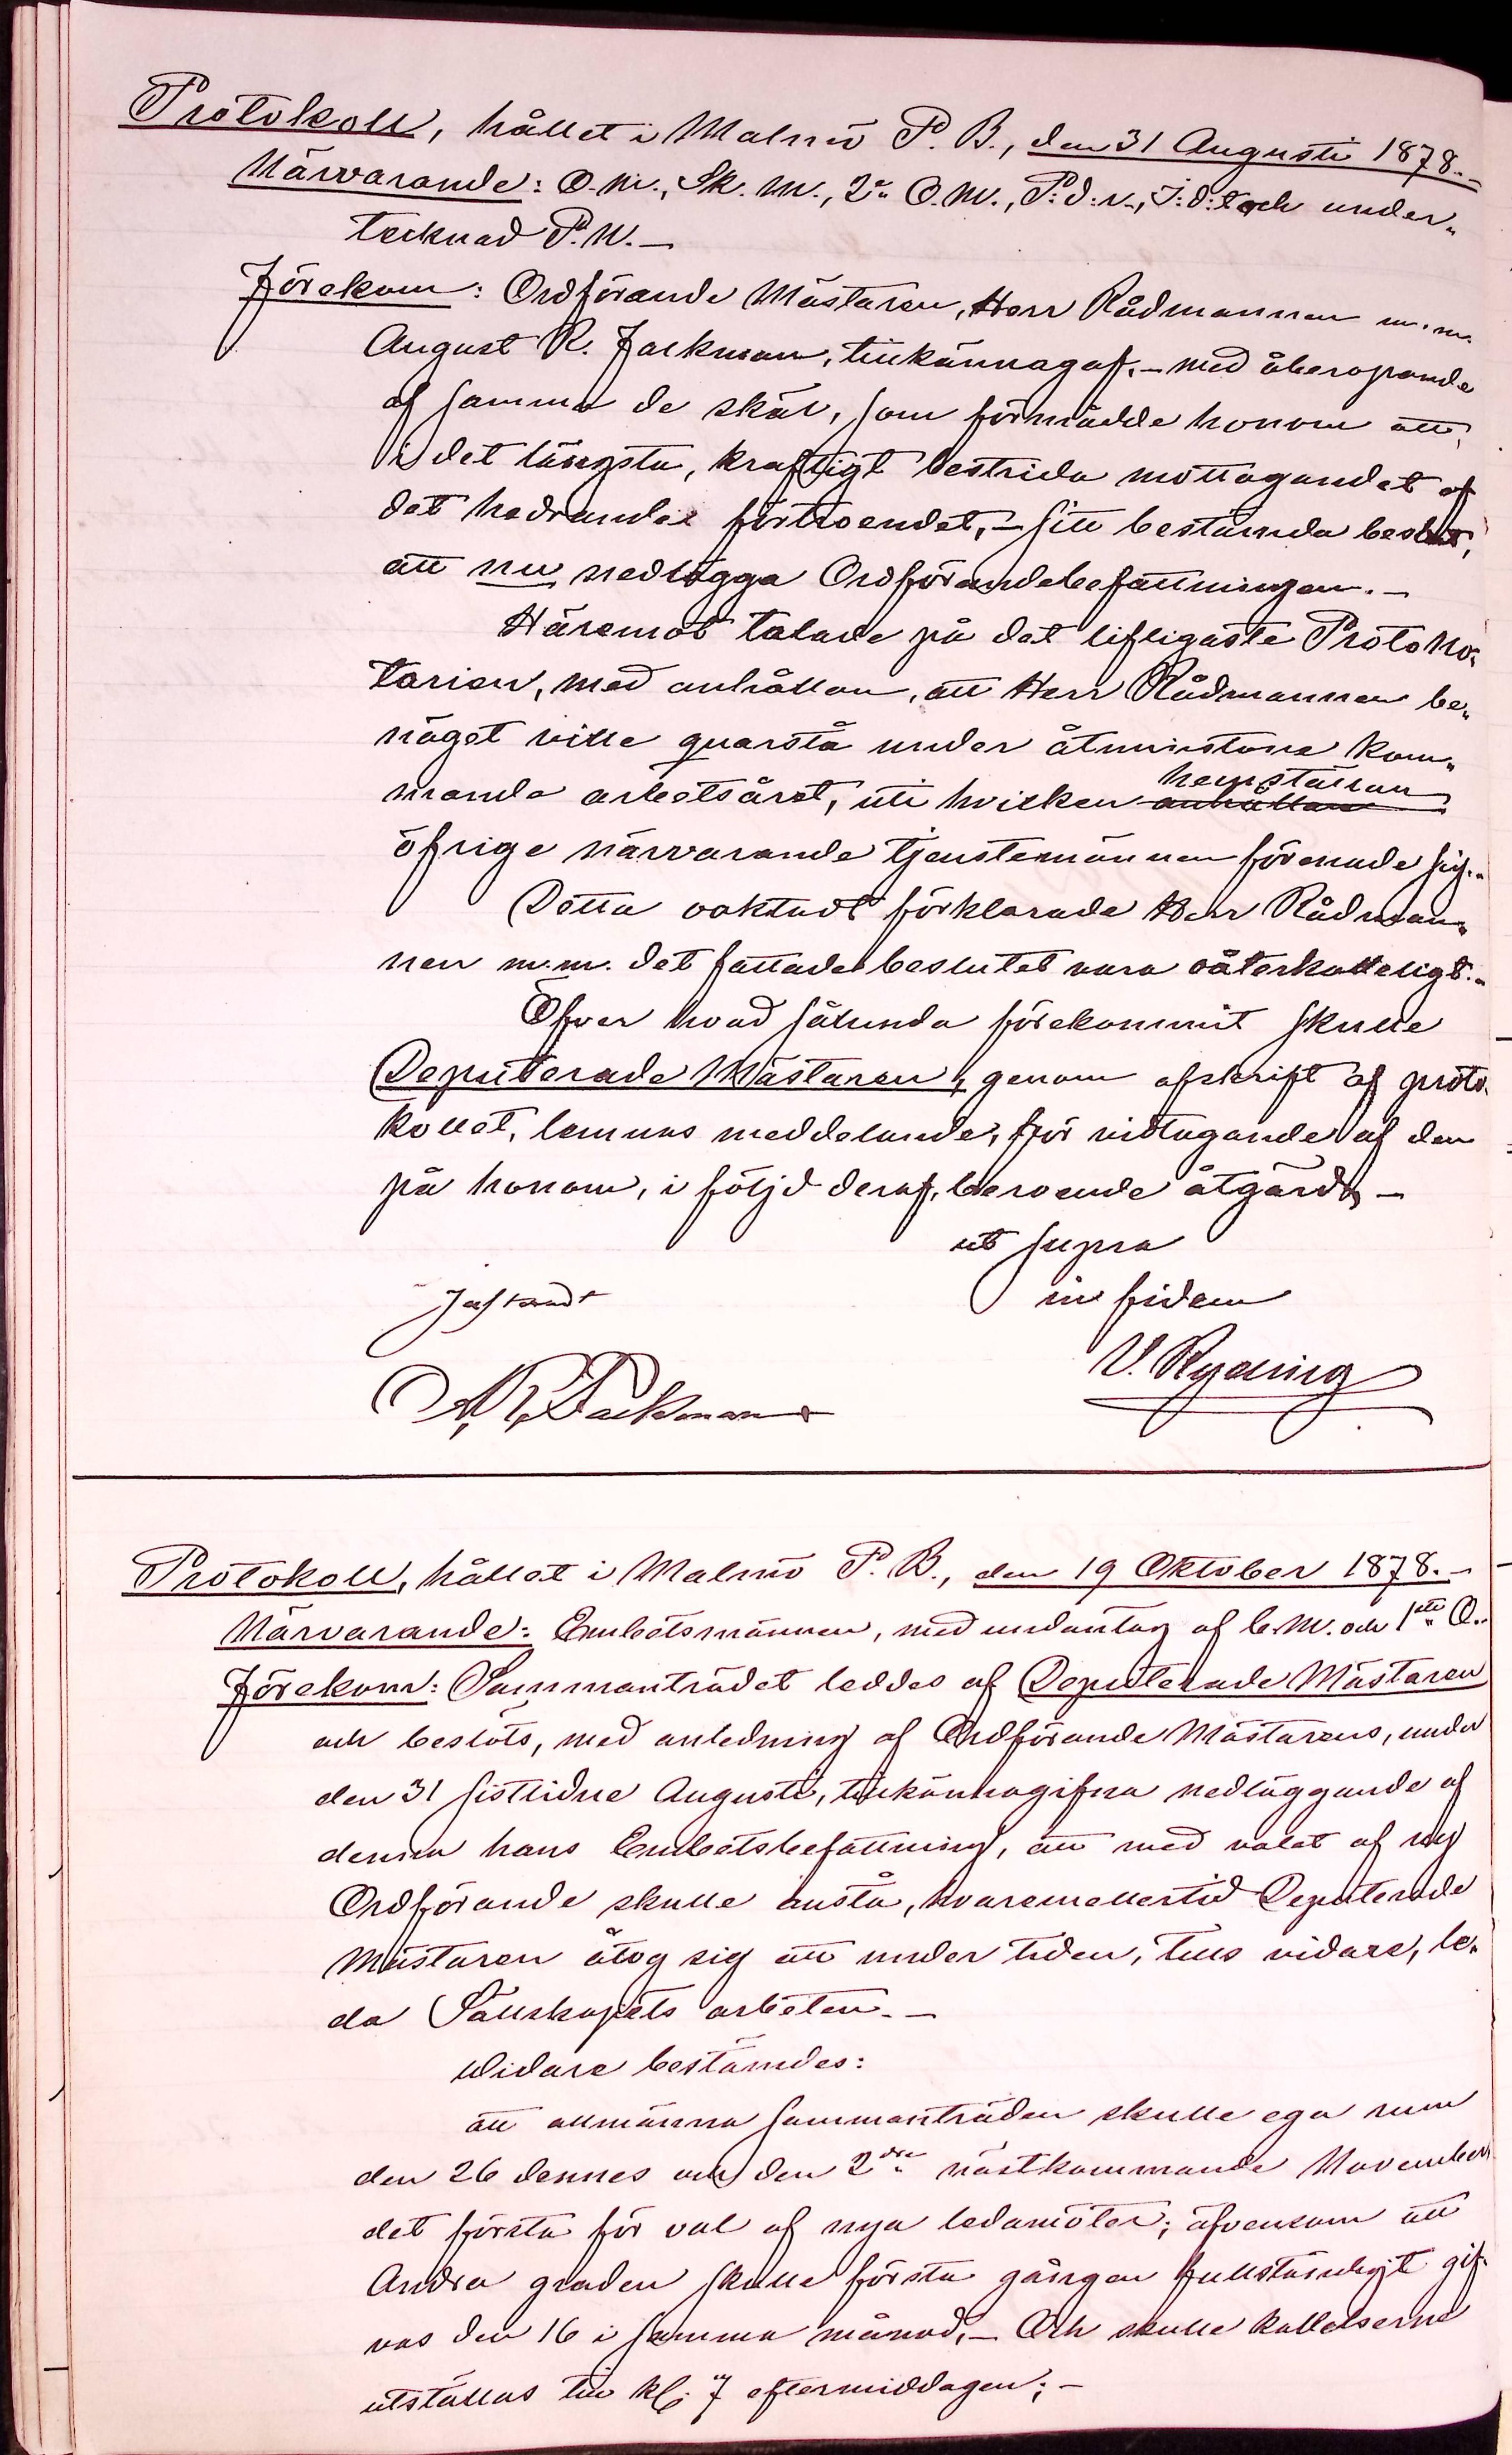 Protokoll, hållet i Malmö P. B., den 31 Augusti 1878.-
Närvarande: O.M., Sk. M., 2a O.M., P:d:v., I:d:t och under-
tecknad P.N.-
Förekom: Ordförande Mästaren, Herr Rådmannen m.m.
August R. Falkman, tillkännagaf,- med åberopande
af samma de skäl, som förmådde honom att,
i det längsta, kraftigt bestrida mottagandet af
det hedrande förtroendet,- sitt bestämda beslut,
att nu nedlägga Ordförandebefattningen.-
Häremot talade på det lifligaste Protono-
tarien, med anhållan, att Herr Rådmannen be-
näget ville quarstå under åtminstone kom-
mande arbetsåret, uti hvilken anhållan hemställan
öfrige närvarande tjenstemännen förenade sig.-
Detta oaktadt förklarade Herr Rådman-
nen m.m. det fattade beslutet vara oåterkalleligt.-
Öfver hvad sålunda förekommit skulle
Deputerade Mästaren, genom afskrift af proto-
kollet, lemnas meddelande, för vidtagande af den
på honom, i följd deraf, beroende åtgärd,-
ut supra
in fidem
Justeradt
V. Ryding
A. R. Falkman
Protokoll, hållet i Malmö P. B., den 19 Oktober 1878.-
Närvarande: Embetsmännen, med undantag af C.M. och 1ste O..
Förekom: Sammanträdet leddes af Deputerade Mästaren
och beslöts, med anledning af Ordförande Mästarens, under
den 31 sistlidne Augusti, tillkännagifna nedläggande af
denna hans Embetsbefattning, att med valet af ny
Ordförande skulle anstå, hvaremellertid Deputerade
Mästaren åtog sig att under tiden, tills vidare, le-
da Sällskapets arbeten.-
Widare bestämdes:
att allmänna sammanträden skulle ega rum
den 26 dennes och den 2dre nästkommande November
det första för val af nya ledamöter; äfvensom att
Andra graden skulle första gången fullständigt gif-
vas den 16 i samma månad,- Och skulle kallelserna
utställas till kl. 7 eftermiddagen;-